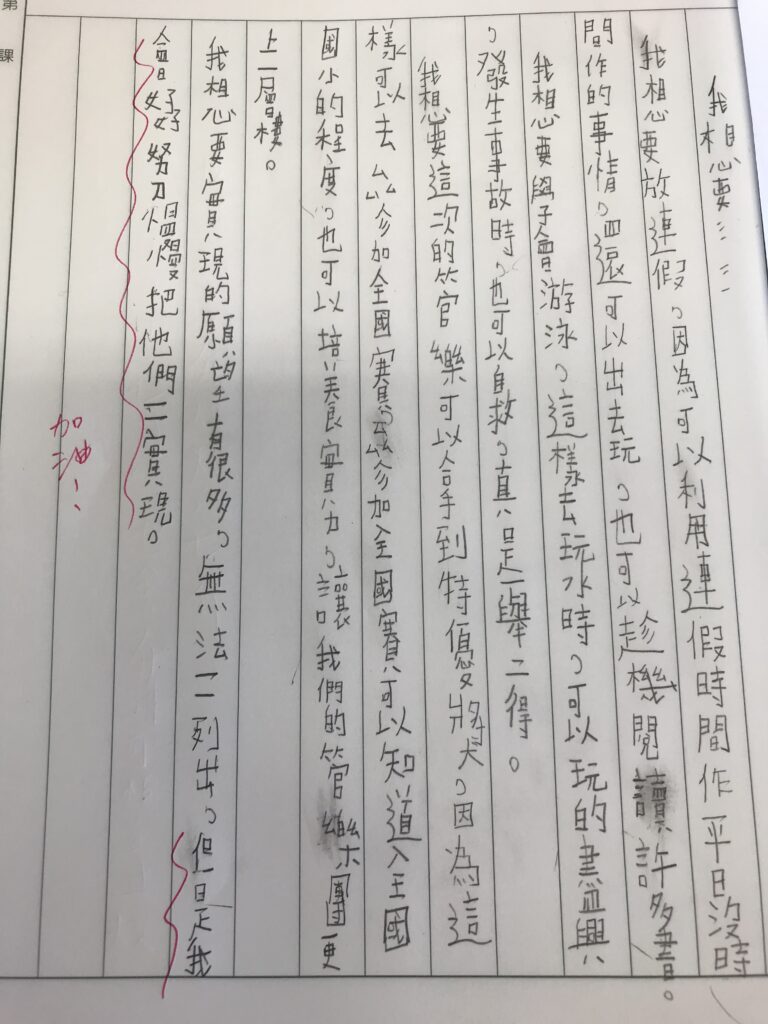 第 課
我想要⋯⋯
我想要放連假，因為可以利用連假時間作平日沒時
間作的事情，還可以出去玩，也可以趁機閱讀許多書。
我想要學會游泳，這樣去玩水時，可以玩的盡興
，發生事故時，也可以自救，真是一舉二得。
我想要這次的管樂可以合手到特優獎，因為這
樣可以去參加全國賽，參加全國賽可以知道全國
國小的程度，也可以培養實力，讓我們的管樂團更
上一層樓。
我想要實現的願望有很多，無法一一列出，但是我
會好好努力慢慢把他們一一實現。
加油！